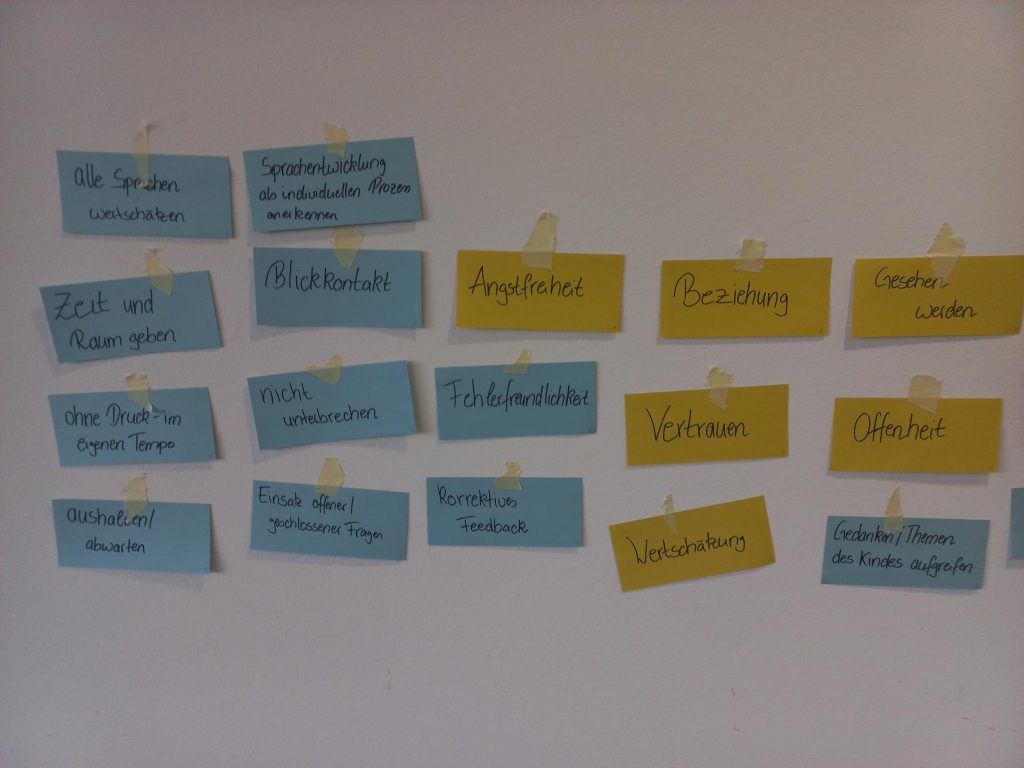 alle Sprachen
wertschätzen
Sprachentwicklung
als individuellen Prozess
anerkennen
Zeit und
Raum geben
Blickkontakt
Angstfreiheit
Beziehung
Gesehen
werden
ohne Druck - im
eigenen Tempo
nicht
unterbrechen
Fehlerfreundlichkeit
Vertrauen
Offenheit
aushalten/
abwarten
Einsatz offener/
geschlossener Fragen
Korrektives
Feedback
Wertschätzung
Gedanken/Themen
des Kindes aufgreifen